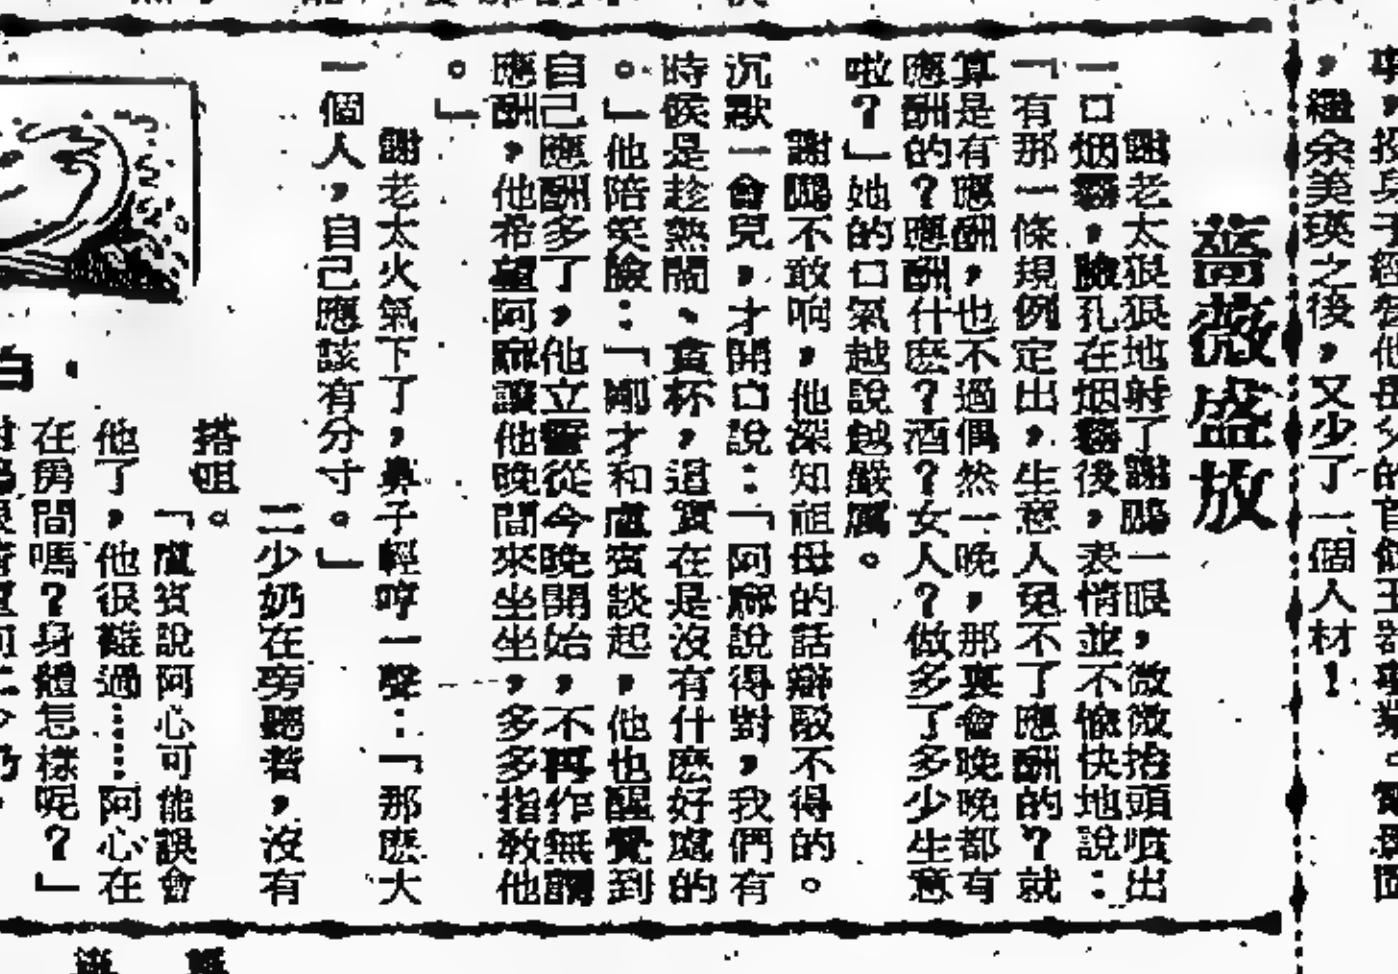 ，繼余美瑛之後，又少了一個人材！
薔薇盛放
謝老太狠狠地射了謝鵬一眼，微微抬頭噴出
一口烟霧，臉孔在烟霧後，表情並不愉快地說：
「有那一條規例定出，生意人免不了應酬的？就
算是有應酬，也不過偶然一晚，那裏會晚晚都有
應酬的？應酬什麽？酒？女人？做多了多少生意
啦？」她的口氣越說越嚴厲。
謝鵬不敢响，他深知祖母的話辯駁不得的。
沉默一會兒，才開口說：「阿嫲說得對，我們有
時候是趁熱鬧、貪杯，這實在是沒有什麽好處的
。」他陪笑臉：「剛才和盧賓談起，他也醒覺到
自己應酬多了，他立誓從今晚開始，不再作無謂
應酬，他希望阿嫲讓他晚間來坐坐，多多指教他
。」
謝老太火氣下了，鼻子輕哼一聲：「那麽大
一個人，自己應該有分寸。」
二少奶在旁聽着，沒有
搭咀。
「盧賓說阿心可能誤會
他了，他很難過……阿心在
在房間嗎？身體怎樣呢？」